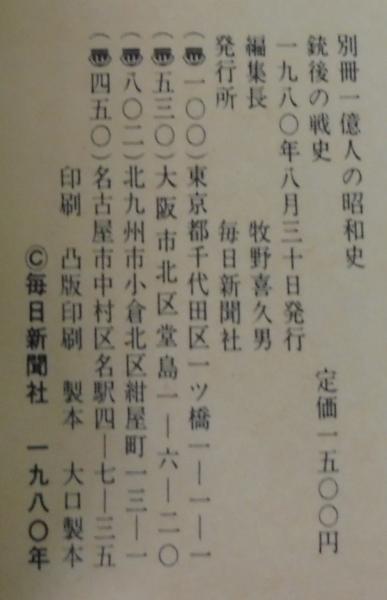 別冊一億人の昭和史
銃後の戦史 定価一五〇〇円
一九八〇年八月三十日発行
編集長 牧野喜久男
発行所 毎日新聞社
(〠一〇〇)東京都千代田区一ツ橋一―一―一
(〠五三〇)大阪市北区堂島一―六―二〇
(〠八〇二)北九州市小倉北区紺屋町一三―一
(〠四五〇)名古屋市中村区名駅四―七―三五
印刷 凸版印刷 製本 大口製本
©毎日新聞社 一九八〇年